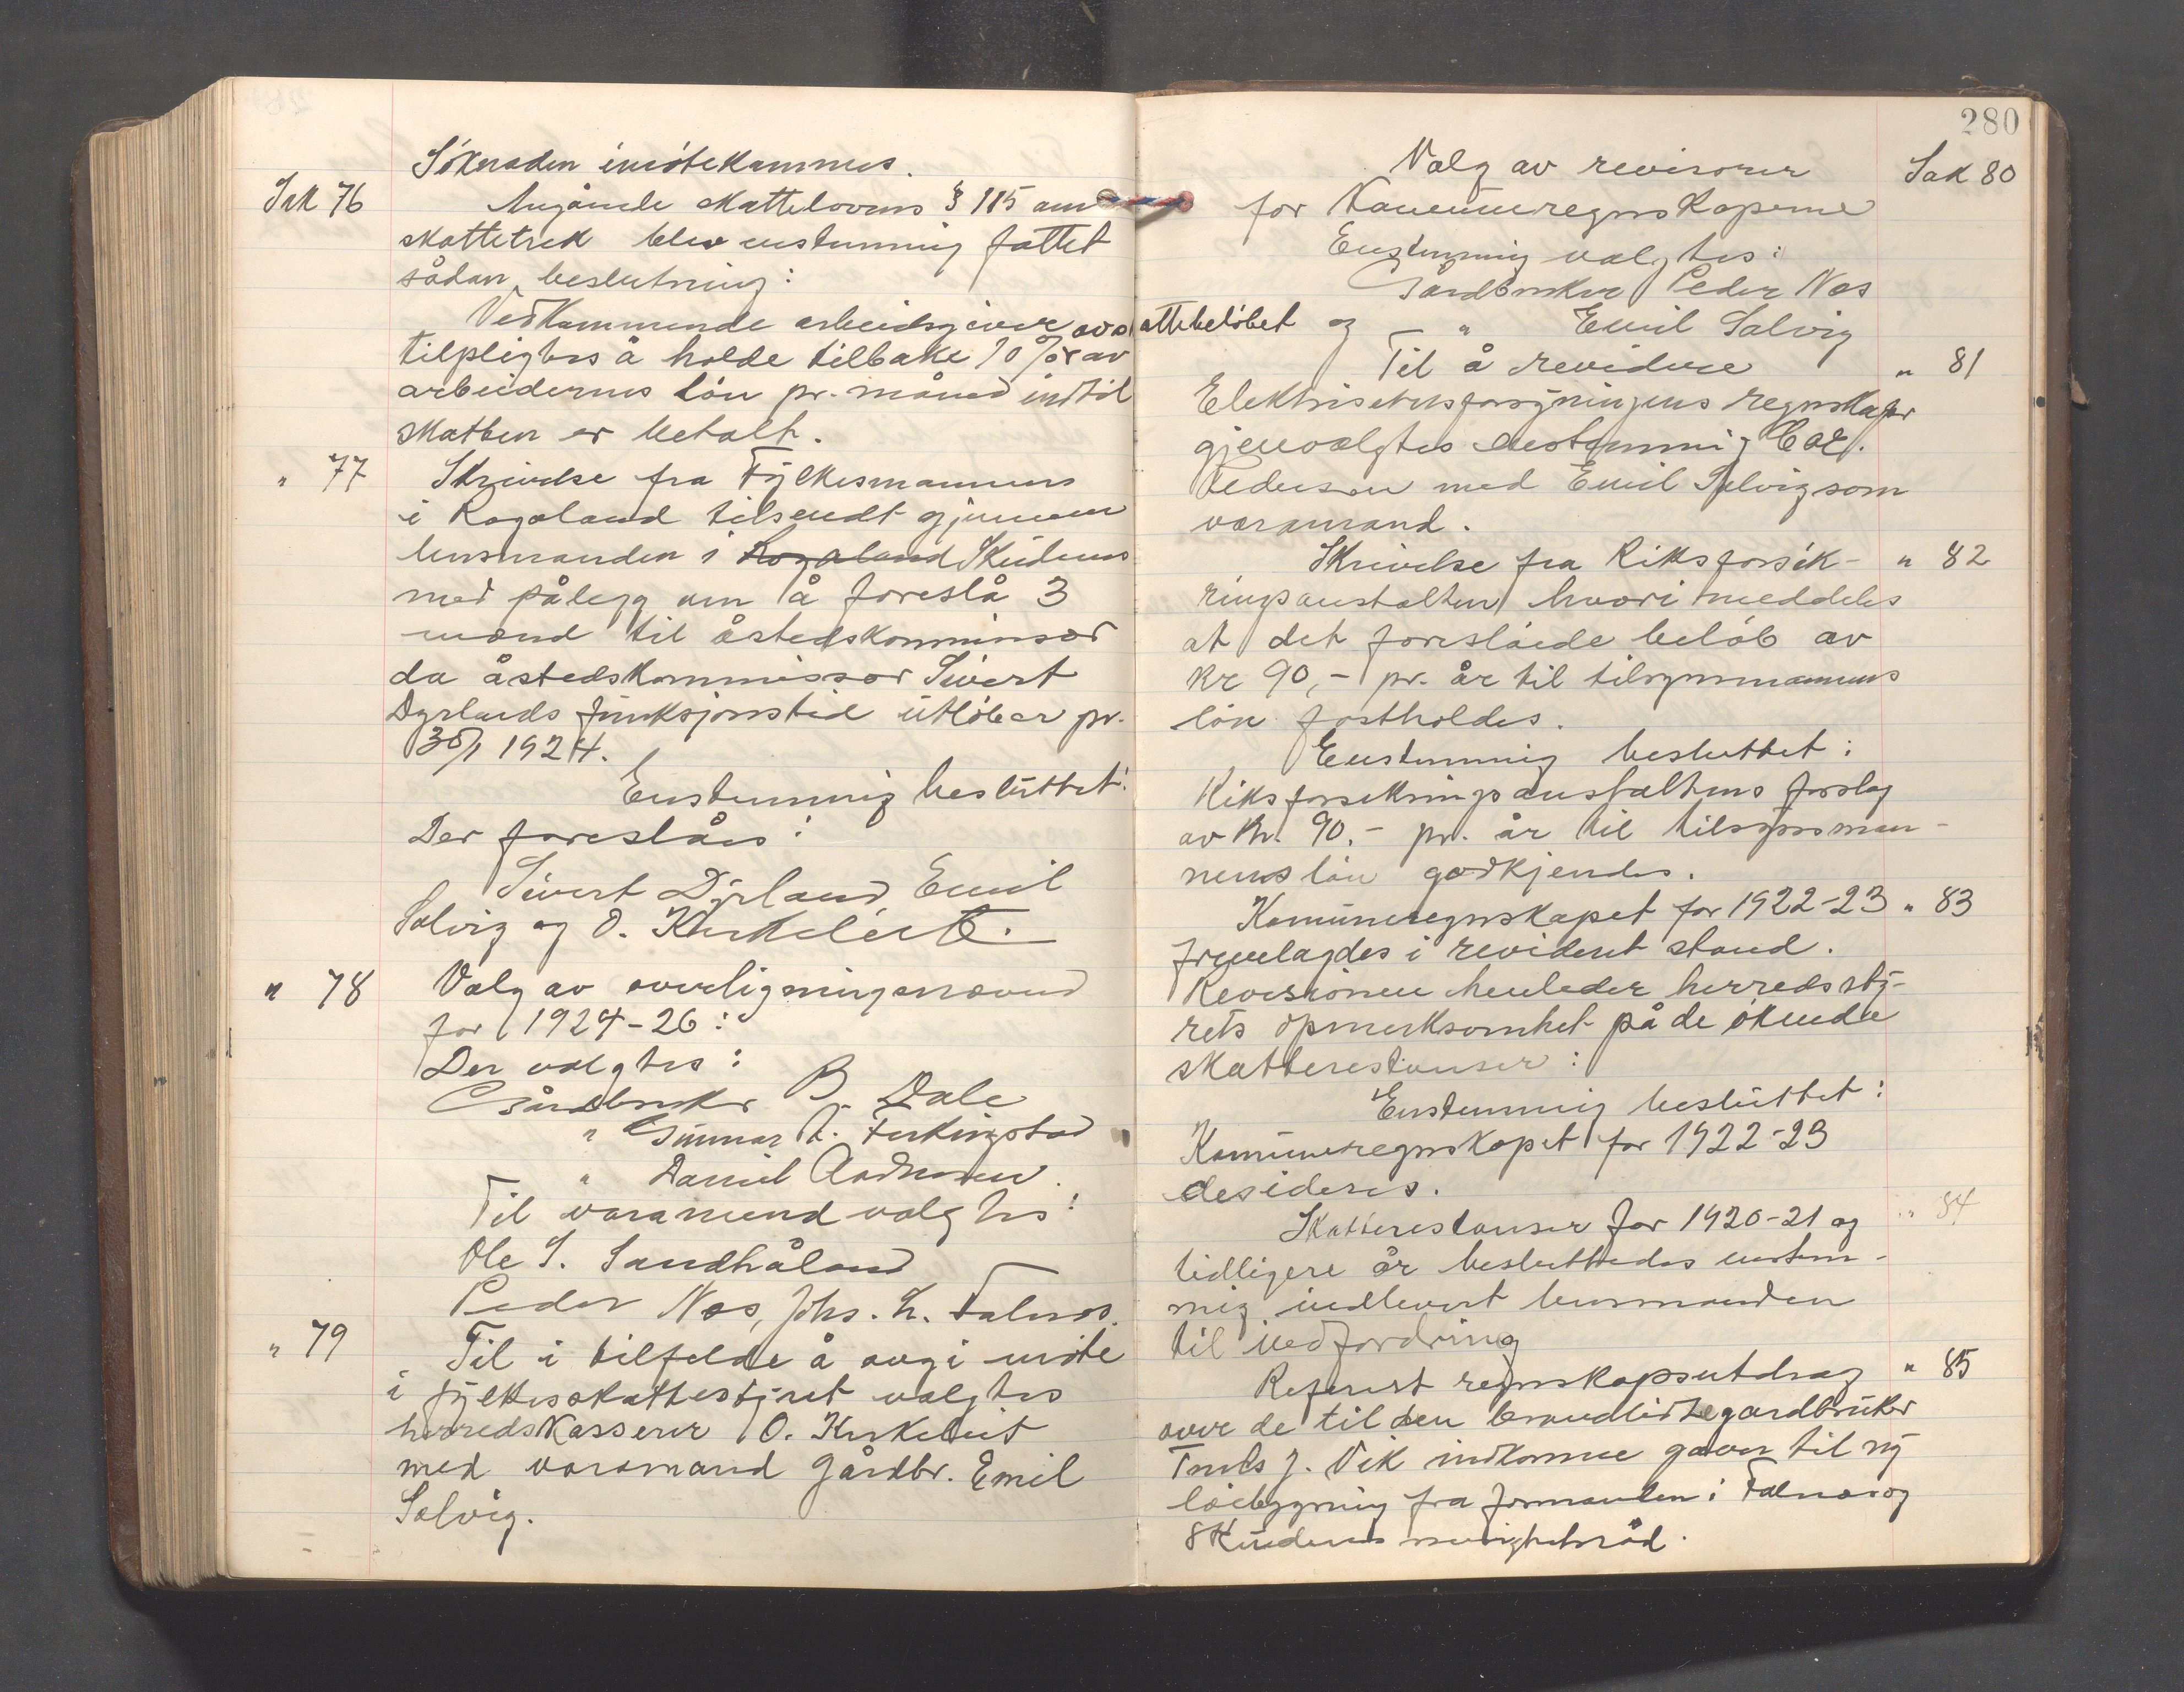 Söknaden imötekommes.
Sak 76 Angående skattelovens § 115 om
skattetrek blev enstemmig fattet
sådan beslutning:
Vedkommende arbeidsgiver
tilpligtes å holde tilbake 10 % av skattebelöbet av
arbeidernes lön pr. måned indtil
skatten er betalt.
" 77 Skrivelse fra Fylkesmannen
i Rogaland tilsendt gjennem
lensmanden i Rogaland Skudenes
med pålegg om å foreslå 3
mænd til åstedskommisær
da åstedskommissær Sivert
Dyrlands funksjonstid utlöber pr.
30/1 1924.
Enstemmig besluttet:
Der foreslåes:
Sivert Dyrland Emil
Solvig og O. Kirkeleit.
" 78 Valg av overligningsnævnd
for 1924-26:
Der valgtes:
Gårdbruker B. Dale
" Gunnar A. Ferkingstad
" Daniel Aadnesen.
Til varamend valgtes:
Ole S. Sandhåland
Peder Nes, Johs. L. Falnes.
" 79 Til i tilfelde å avgi möte
i fylkesskattestyret valgtes
herredskasserer O. Kirkeleit
med varamand gårdbr. Emil
Solvig.
280
Valg av revisorer Sak 80
for Kommuneregnskaperne
Enstemmig valgtes:
Gårdbruker Peder Nes
og – " Emil Solvig
Til å revidere " 81
Elektrisitetsforsyningens regnskaper
gjenvalgtes enstemmig
Pedersen med Emil Solvig som
varamand.
Skrivelse fra Riksforsik- " 82
ringsanstalten hvori meddeles
at det foreslåede belöb av
kr 90,- pr. år til tilsynsmannens
lön fastholdes.
Enstemmig besluttet:
Riksforsikringsanstaltens forslag
av kr. 90.- pr. år til tilsynsman-
nens lön godkjendes.
Komuneregnskapet for 1922-23 " 83
fremlagdes i revidert stand.
Revisionen henleder herredssty-
rets opmerksomhet på de ökende
skatterestanser:
Enstemmig besluttet:
Komuneregnskapet for 1922-23
desideres.
Skatterestanser for 1920-21 og " 84
tidligere år besluttedes enstem-
mig indlevert lensmanden
til indfordring
Referert regnskapsutdrag " 85
over de til den brandlidte gardbruker
Truls J. Vik indkomne gaver til ny
löebygning fra formanden i Falnes og
Skudenes menighetsråd.